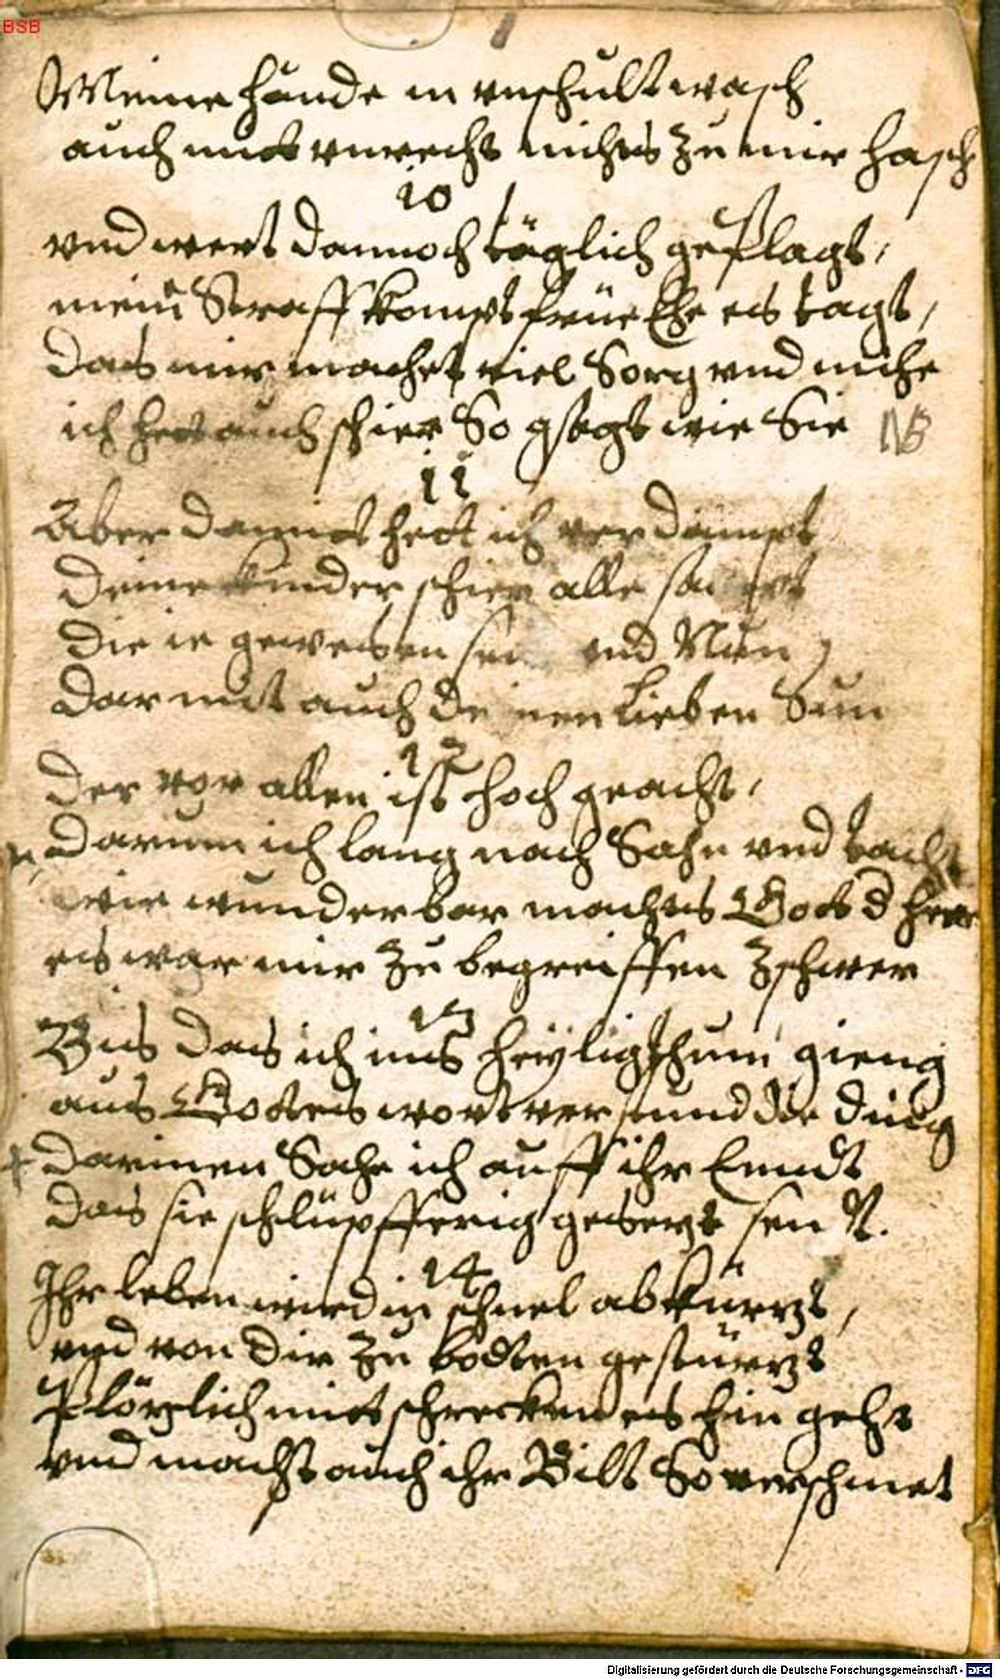 BSB
Meine hände in unschult wasch
auch mitt unrecht nichts zu mir hasch
10
vnd wert dannoch täglich geplagt,
mein Straff kompt früe Ehe es tagt,
Das mir machet viel Sorg vnd mihe
ich hett auch schier So gsagt wie Sie NB
11
Aber damitt hett ich verdampt
Deine kinder schier alle
Die ie gewesen sein vnd Nun
Dar mit auch deinen lieben Sun
12
Der vor allen ist hoch geacht,
Darum ich lang nach Sahe vnd tacht
wie wunderbar machts Gott d herr
es war mir zu begreiffen zschwer
13
Bis das ich ins heyligthum gieng
aus Gottes wort verstund die ding
Darinnen Sahe ich auff ihr Enndt
Das sie schlüpfferig gesetzt sen
14
Ihr leben wird in schnel abkürzt,
vnd von dir zu bodten gestürzt
Plötzlich mitt schrecken es hin geht
vnd machst auch ihr Bilt So verschmet
Digitalisierung gefördert durch die Deutsche Forschungsgemeinschaft - DFG